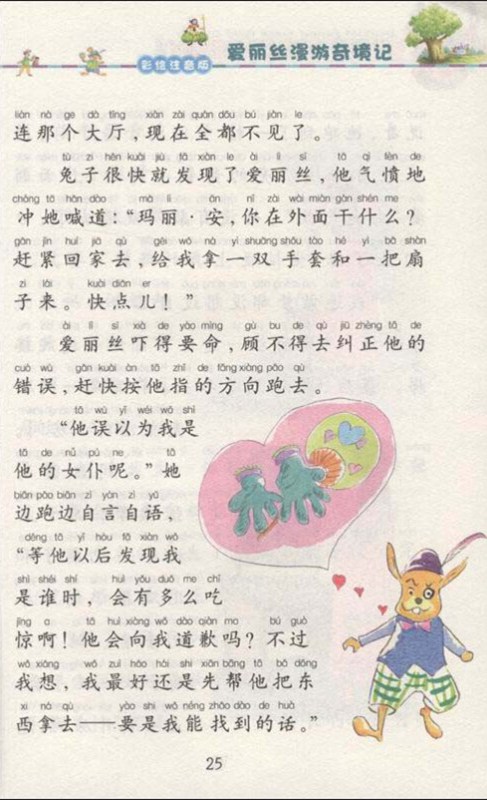 彩绘注音版 爱丽丝漫游奇境记
lián nà ge dà tīng xiàn zài quán dōu bú jiàn le
连那个大厅，现在全都不见了。
tù zi hěn kuài jiù fā xiàn le ài lì sī tā qì fèn de
兔子很快就发现了爱丽丝，他气愤地
chòng tā hǎn dào mǎ lì ān nǐ zài wài miàn gàn shén me
冲她喊道：“玛丽·安，你在外面干什么？
gǎn jǐn huí jiā qù gěi wǒ ná yì shuāng shǒu tào hé yì bǎ shàn
赶紧回家去，给我拿一双手套和一把扇
zi lái kuài diǎn er
子来。快点儿！”
ài lì sī xià de yào mìng gù bu de qù jiū zhèng tā de
爱丽丝吓得要命，顾不得去纠正他的
cuò wù gǎn kuài àn tā zhǐ de fāng xiàng pǎo qù
错误，赶快按他指的方向跑去。
tā wù yǐ wéi wǒ shì
“他误以为我是
tā de nǚ pú ne tā
他的女仆呢。”她
biān pǎo biān zì yán zì yǔ
边跑边自言自语，
děng tā yǐ hòu fā xiàn wǒ
“等他以后发现我
shì shéi shí huì yǒu duō me chī
是谁时，会有多么吃
jīng a tā huì xiàng wǒ dào qiàn ma bú guò
惊啊！他会向我道歉吗？不过
wǒ xiǎng wǒ zuì hǎo hái shi xiān bāng tā bǎ dōng
我想，我最好还是先帮他把东
xi ná qù yào shi wǒ néng zhǎo dào de huà
西拿去——要是我能找到的话。”
25